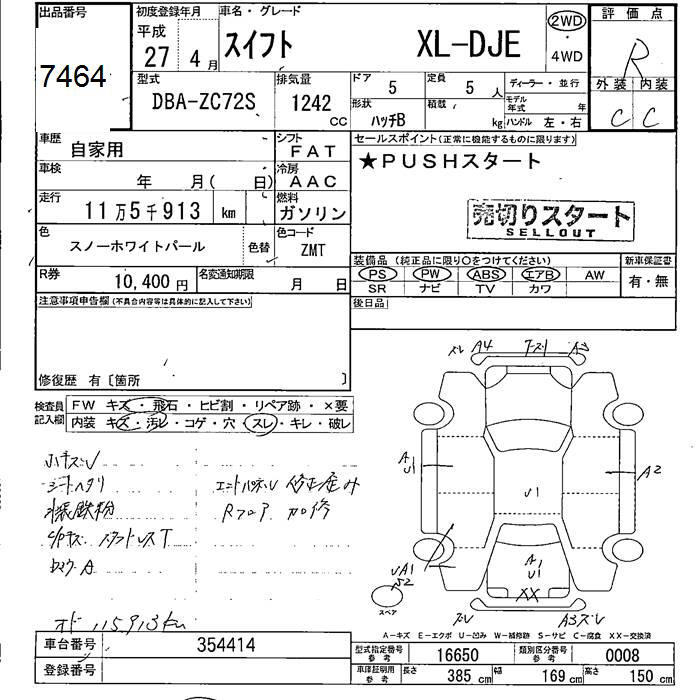 出品番号 初度登録年月 車名・グレード 評価点
7464 平成 27 4月 スイフト XL-DJE 2WD・4WD R
外装 内装
C C
型式 DBA-ZC72S 排気量 1242 CC ドア 5 定員 5 人 ディーラー・並行
形状 ハッチB 積載 kg モデル年式 年
ハンドル 左・右
車歴 自家用 シフト FAT セールスポイント(正常に機能するものに限ります)
車検 年 月( 日) 冷房 AAC ★PUSHスタート
走行 11万5千913 km 燃料 ガソリン 売切りスタート
SELLOUT
色 スノーホワイトパール 色替 色コード ZMT
装備品(純正品に限り〇をつけてください) 新車保証書
PS PW ABS エアB AW 有・無
SR ナビ TV カワ
R券 10,400円 名変通知期限 月 日
注意事項申告欄(不具合内容等は具体的に記入して下さい) 後日品
修復歴 有〔箇所 〕
検査員記入欄 FW キズ・飛石・ヒビ割・リペア跡・×要
内装 キズ・汚レ・コゲ・穴・スレ・キレ・破レ
シートヘタリ
Rフロア 加修
オド 115,913km
A4
A U1 A2
U1
A U1
UA1 S2
XX
スペア
A3ズレ
A-キズ E-エクボ U-凹み W-補修跡 S-サビ C-腐食 XX-交換済
車台番号 354414 型式指定番号 参考 16650 類別区分番号 参考 0008
登録番号 車庫証明用 参考 長さ 385 cm 幅 169 cm 高さ 150 cm